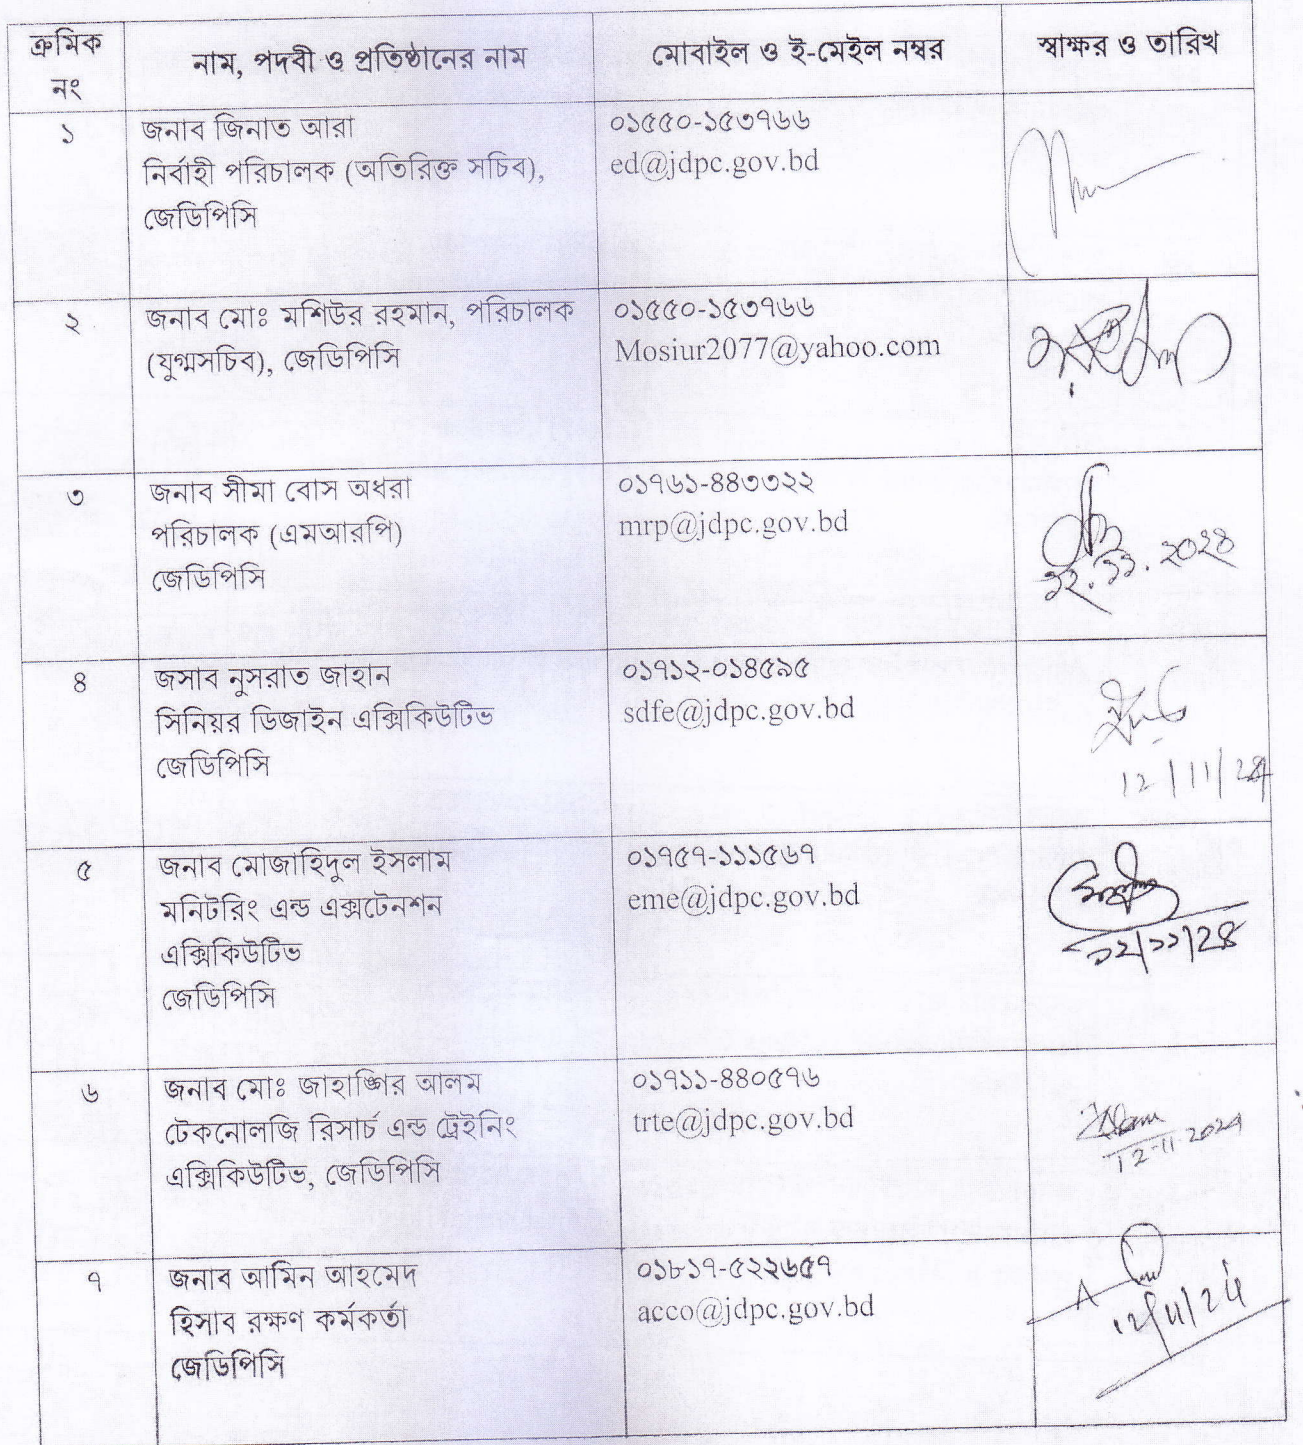 ক্রমিক
নং
নাম, পদবী ও প্রতিষ্ঠানের নাম
মোবাইল ও ই-মেইল নম্বর
স্বাক্ষর ও তারিখ
১
জনাব জিনাত আরা
নির্বাহী পরিচালক (অতিরিক্ত সচিব),
জেডিপিসি
০১৫৫০-১৫৩৭৬৬
ed@jdpc.gov.bd
২
জনাব মোঃ মশিউর রহমান, পরিচালক
(যুগ্মসচিব), জেডিপিসি
০১৫৫০-১৫৩৭৬৬
Mosiur2077@yahoo.com
৩
জনাব সীমা বোস অধরা
পরিচালক (এমআরপি)
জেডিপিসি
০১৭৬১-৪৪৩৩২২
mrp@jdpc.gov.bd
১২.১১.২০২৪
৪
জসাব নুসরাত জাহান
সিনিয়র ডিজাইন এক্সিকিউটিভ
জেডিপিসি
০১৭১২-০১৪৫৯৫
sdfe@jdpc.gov.bd
12/11/24
৫
জনাব মোজাহিদুল ইসলাম
মনিটরিং এন্ড এক্সটেনশন
এক্সিকিউটিভ
জেডিপিসি
০১৭৫৭-১১১৫৬৭
eme@jdpc.gov.bd
১২/১১/২৪
৬
জনাব মোঃ জাহাঙ্গির আলম
টেকনোলজি রিসার্চ এন্ড ট্রেইনিং
এক্সিকিউটিভ, জেডিপিসি
০১৭১১-৪৪০৫৭৬
trte@jdpc.gov.bd
12-11-2024
৭
জনাব আমিন আহমেদ
হিসাব রক্ষণ কর্মকর্তা
জেডিপিসি
০১৮১৭-৫২২৬৫৭
acco@jdpc.gov.bd
12/11/24